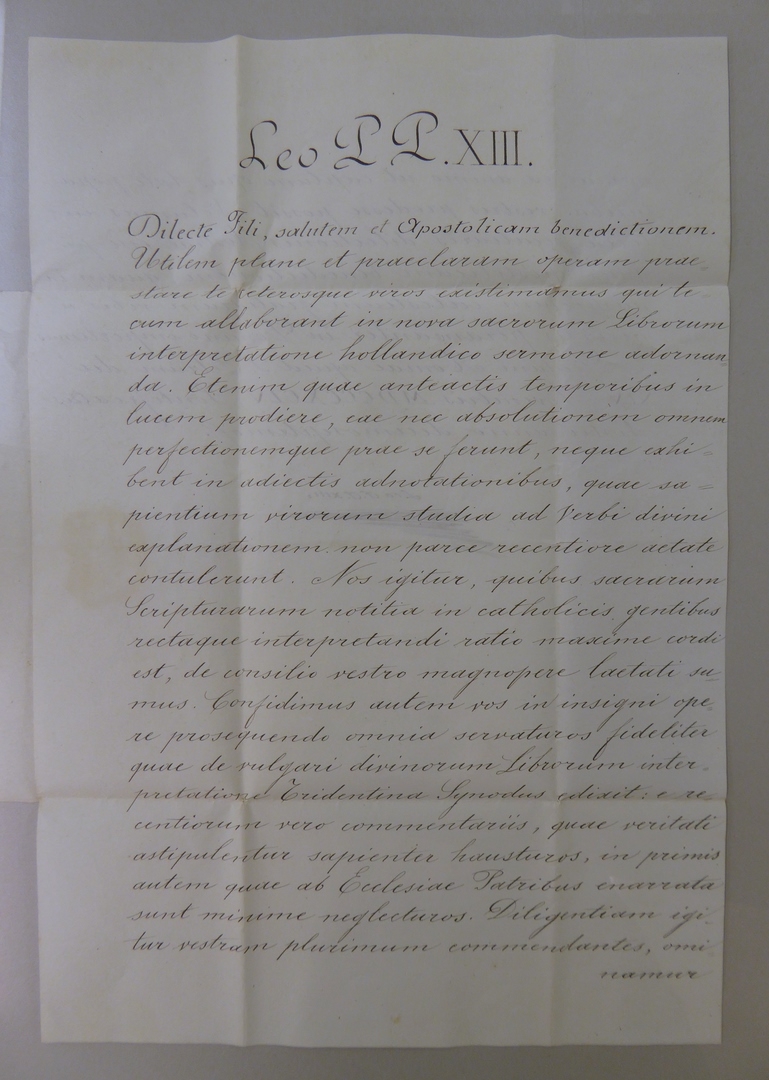 Leo P P. XIII.
Dilecte Fili, salutem et Apostolicam benedictionem.
Utilem plane et praeclaram operam prae-
stare te ceterosque viros existimamus qui te-
cum allaborant in nova sacrorum Librorum
interpretatione hollandico sermone adornan-
da. Etenim quae anteactis temporibus in
lucem prodiere, eae nec absolutionem omnem
perfectionemque prae se ferunt, neque exhi-
bent in adiectis adnotationibus, quae sa-
pientium virorum studia ad Verbi divini
explanationem non parce recentiore aetate
contulerunt. Nos igitur, quibus sacrarum
Scripturarum notitia in catholicis gentibus
rectaque interpretandi ratio maxime cordi
est, de consilio vestro magnopere laetati su-
mus. Confidimus autem vos in insigni ope-
re prosequendo omnia servaturos fideliter
quae de vulgari divinorum Librorum inter-
pretatione Tridentina Synodus edixit: e re-
centiorum vero commentariis, quae veritati
astipulentur sapienter hausturos, in primis
autem quae ab Ecclesiae Patribus enarrata
sunt minime neglecturos. Diligentiam igi-
tur vestram plurimum commendantes, omi-
namur